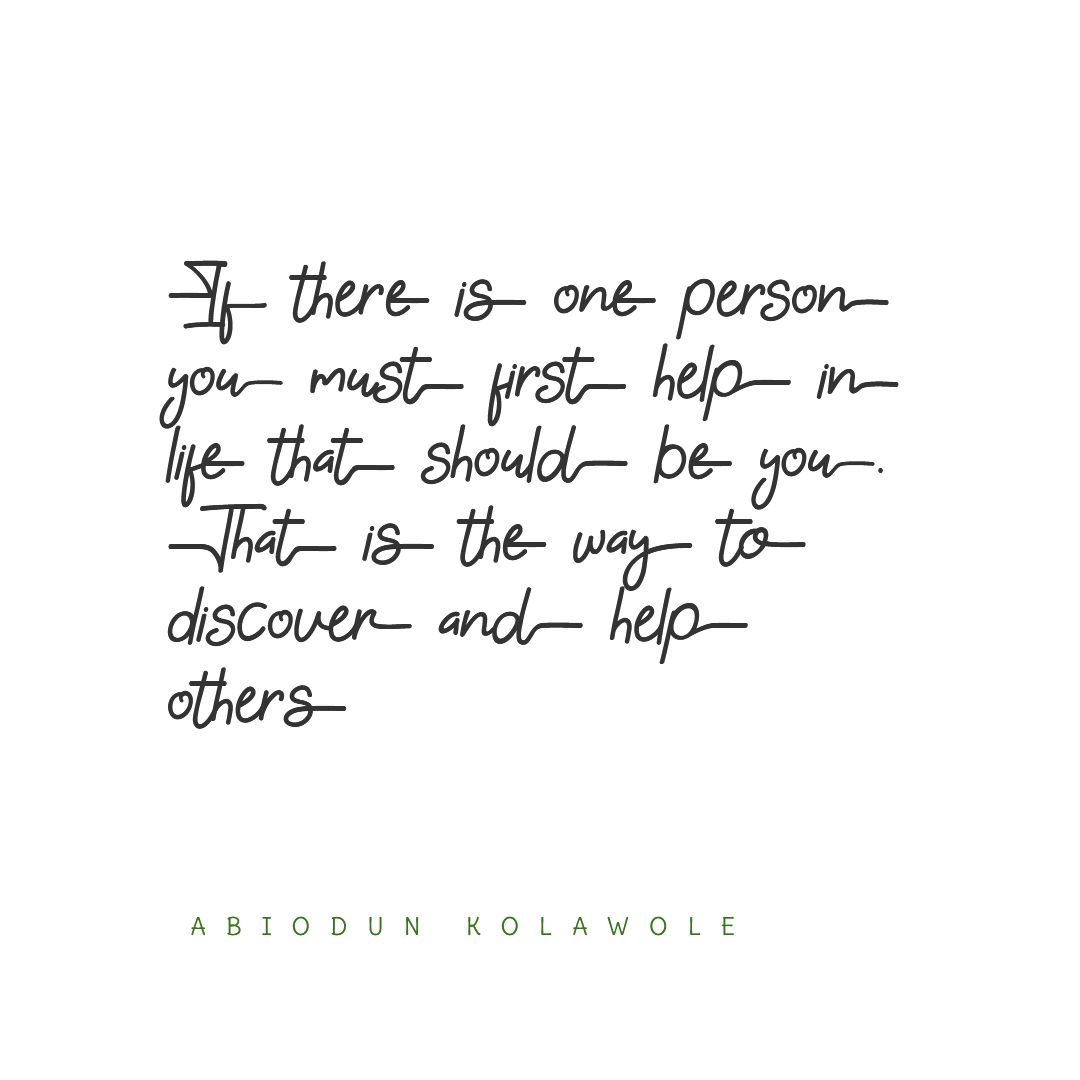 If there is one person
you must first help in
life that should be you.
That is the way to
discover and help
others
ABIODUN KOLAWOLE